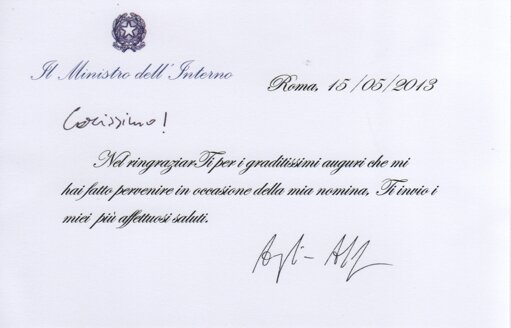 Il Ministro dell'Interno
Roma, 15/05/2013
Carissimo!
Nel ringraziarTi per i graditissimi auguri che mi
hai fatto pervenire in occasione della mia nomina, Ti invio i
miei più affettuosi saluti.